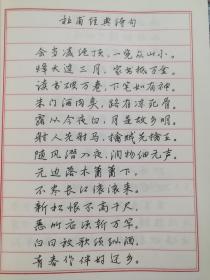 杜甫经典诗句
会当凌绝顶，一览众山小。
烽火连三月，家书抵万金。
读书破万卷，下笔如有神。
朱门酒肉臭，路有冻死骨。
露从今夜白，月是故乡明。
射人先射马，擒贼先擒王。
随风潜入夜，润物细无声。
无边落木萧萧下，
不尽长江滚滚来。
新松恨不高千尺，
恶竹应须斩万竿。
白日放歌须纵酒，
青春作伴好还乡。